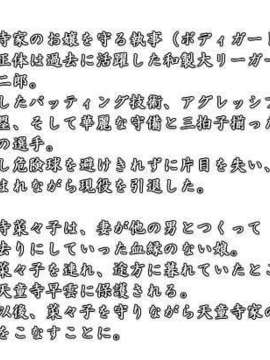 寺家のお嬢を守る執事（ボディガード
正体は過去に活躍した和製大リーガー
二郎。
したバッティング技術、アグレッシブ
塁、そして華麗な守備と三拍子揃った
の選手。
し危険球を避けきれずに片目を失い、
まれながら現役を引退した。
寺菜々子は、妻が他の男とつくって
去りにしていった血縁のない娘。
菜々子を連れ、途方に暮れていたとこ
天童寺早雲に保護される。
以後、菜々子を守りながら天童寺家の
をこなすことに。